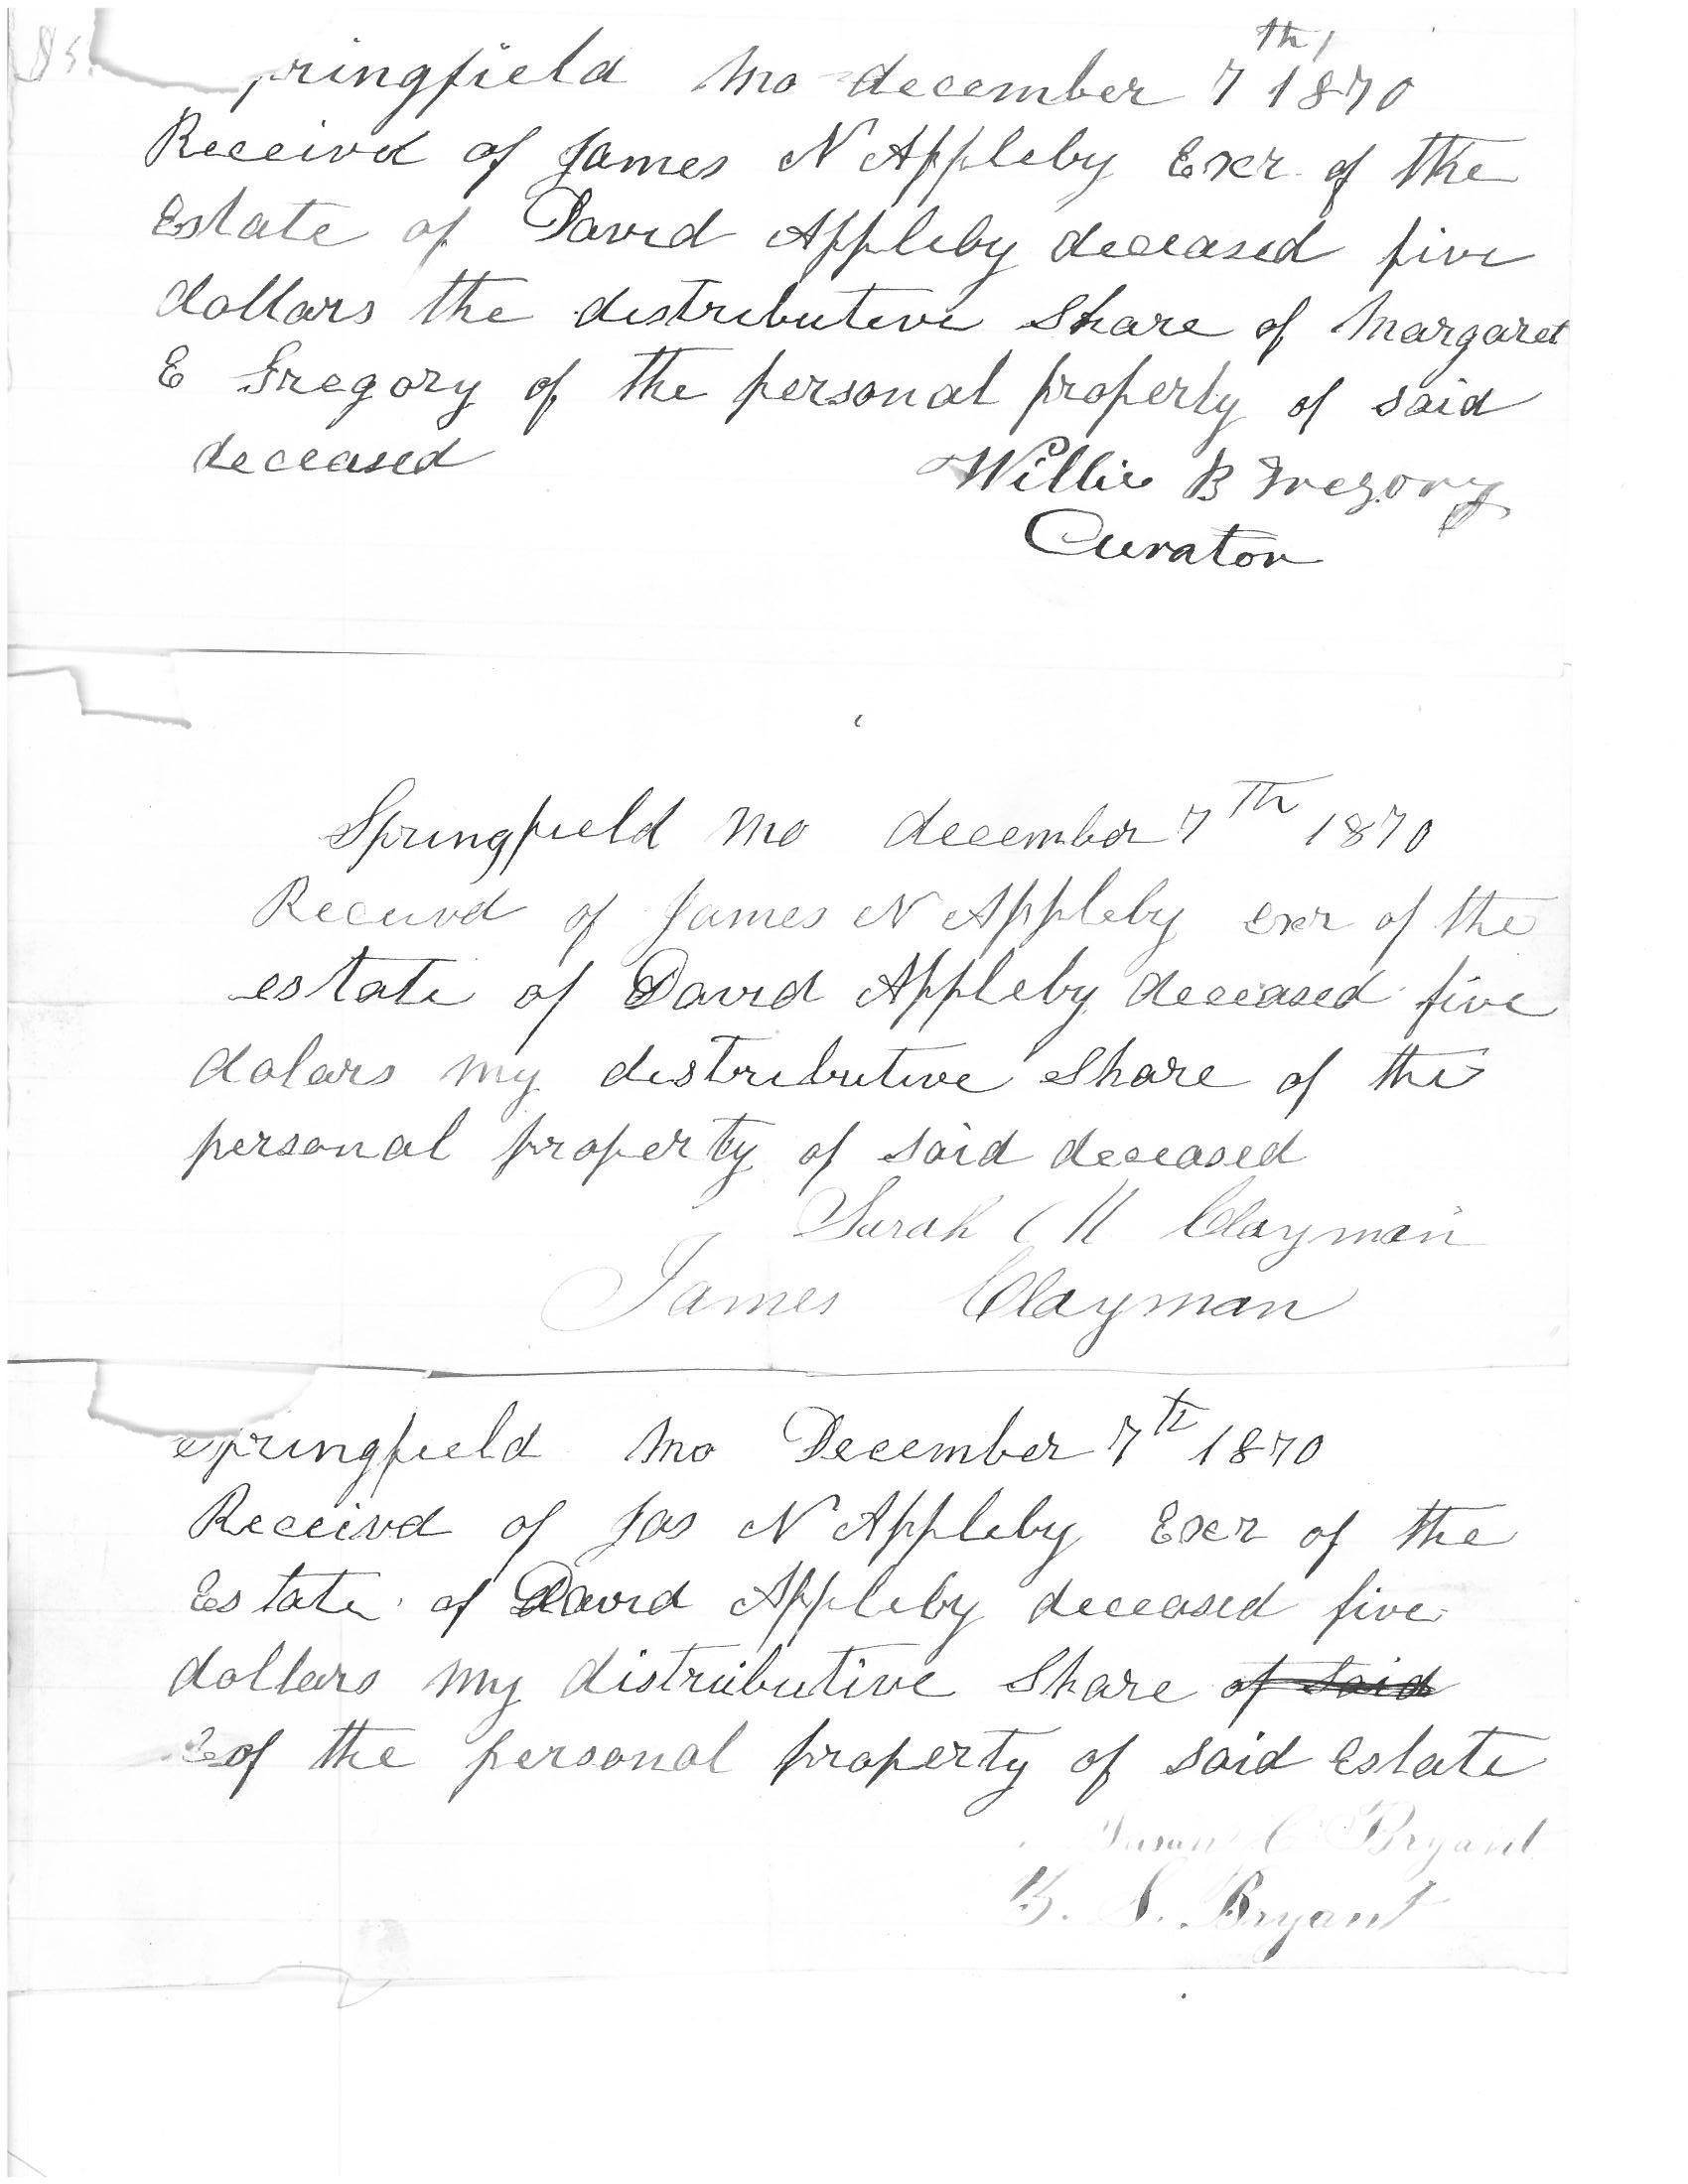 $5.
pringfield Mo december 7th 1870
Receivd of James N Appleby Exr of the
Estate of David Appleby deceased five
dollars the distributive Share of Margaret
E Gregory of the personal property of said
deceased
Willie B Gregory
Curator
Springfield Mo december 7th 1870
Receivd of James N Appleby exr of the
estate of David Appleby deceased five
dolars my distributive Share of the
personal property of said deceased
Sarah Clayman
James Clayman
Springfield Mo December 7th 1870
Receivd of Jas N Appleby Exr of the
Estate of David Appleby deceased five
dollars my distributive Share of said
of the personal property of said Estate
Susan C Bryant
B. S. Bryant